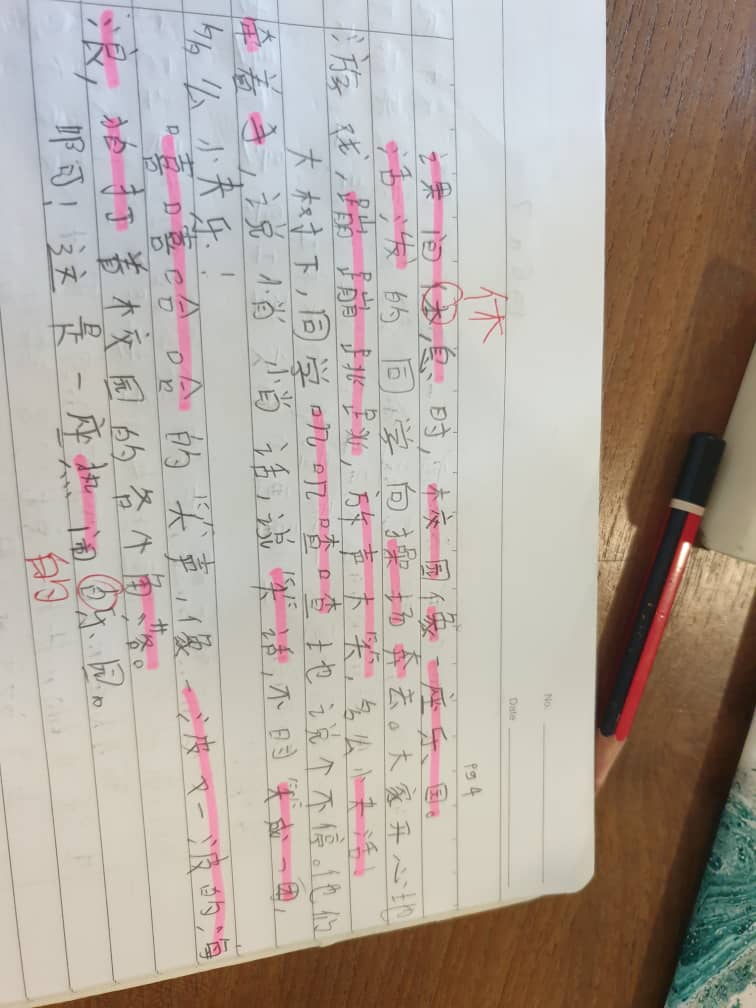 No.
Date
pg 4
休
课间体息时,校园像一座乐园。
活泼的同学向操场奔去。大家开心地
游戏,蹦蹦跳跳,放声大笑,多么快活!
大树下,同学叽叽喳喳地说个不停。他们
牵着手,说悄悄话,说笑话,不时笑成一团,
多么快乐!
嘻嘻哈哈的笑声,像一波又一波的海
浪,拍打着校园的各个角落。
即可!这是一座热闹白乐园。
的